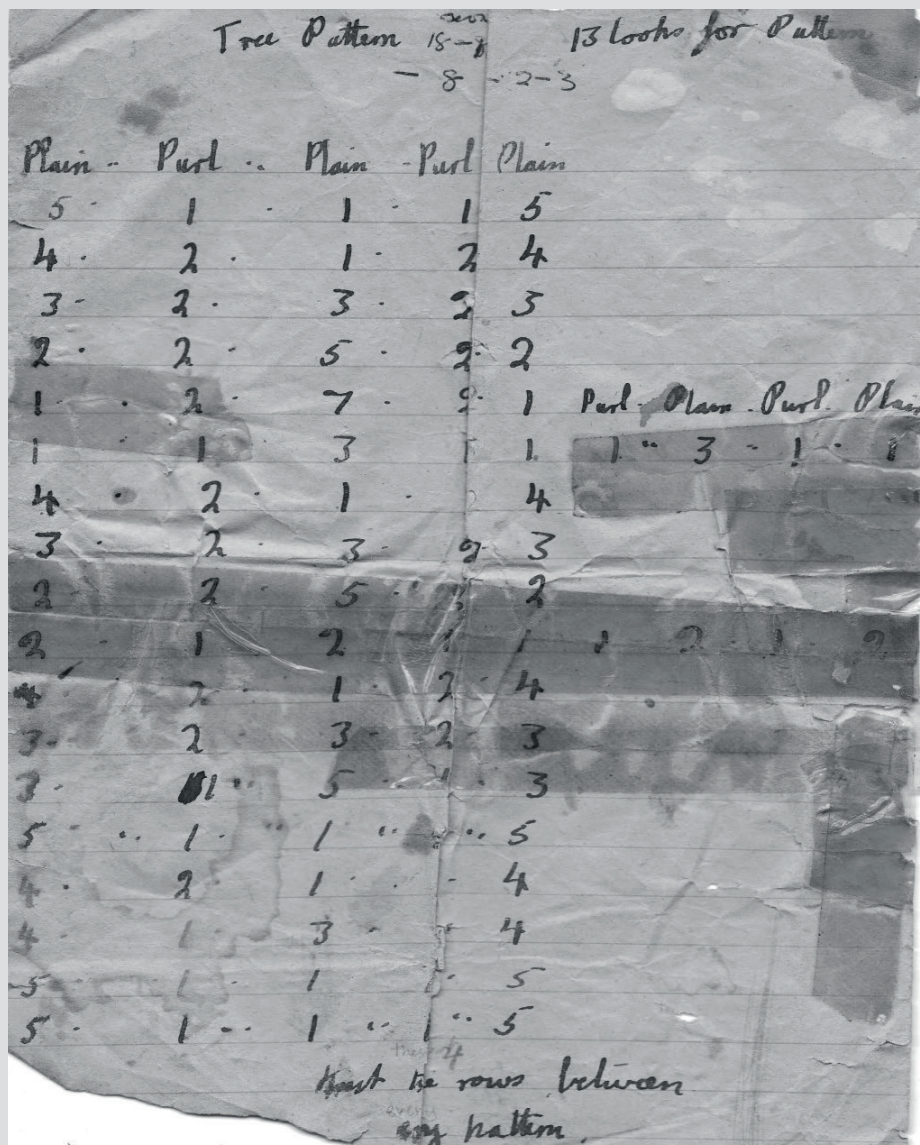 Tree Pattern 15 - 13 looks for Pattern
- 8 - 2 - 3
Plain .. Purl .. Plain - Purl Plain
5 - 1 - 1 - 1 5
4 - 2 - 1 - 2 4
3 - 2 - 3 - 2 3
2 - 2 - 5 - 2 2
1 - 2 - 7 - 2 1 Purl Plain . Purl Plain
1 1 3 1 1 1 " 3 - 1 - 1
4 - 2 - 1 - 4
3 - 2 - 3 - 2 3
2 2 - 5 - 2
2 - 1 2 1 1 1 2 - 1 2
4 - 2 - 1 - 2 - 4
3 - 2 3 - 2 - 3
1 " 5 - 3
5 " 1 - " 1 " " 5
4 - 2 1 - - 4
4 - 1 3 - 4
5 1 1 5
5 - 1 - - 1 " 1 " 5
rows between
any pattern.